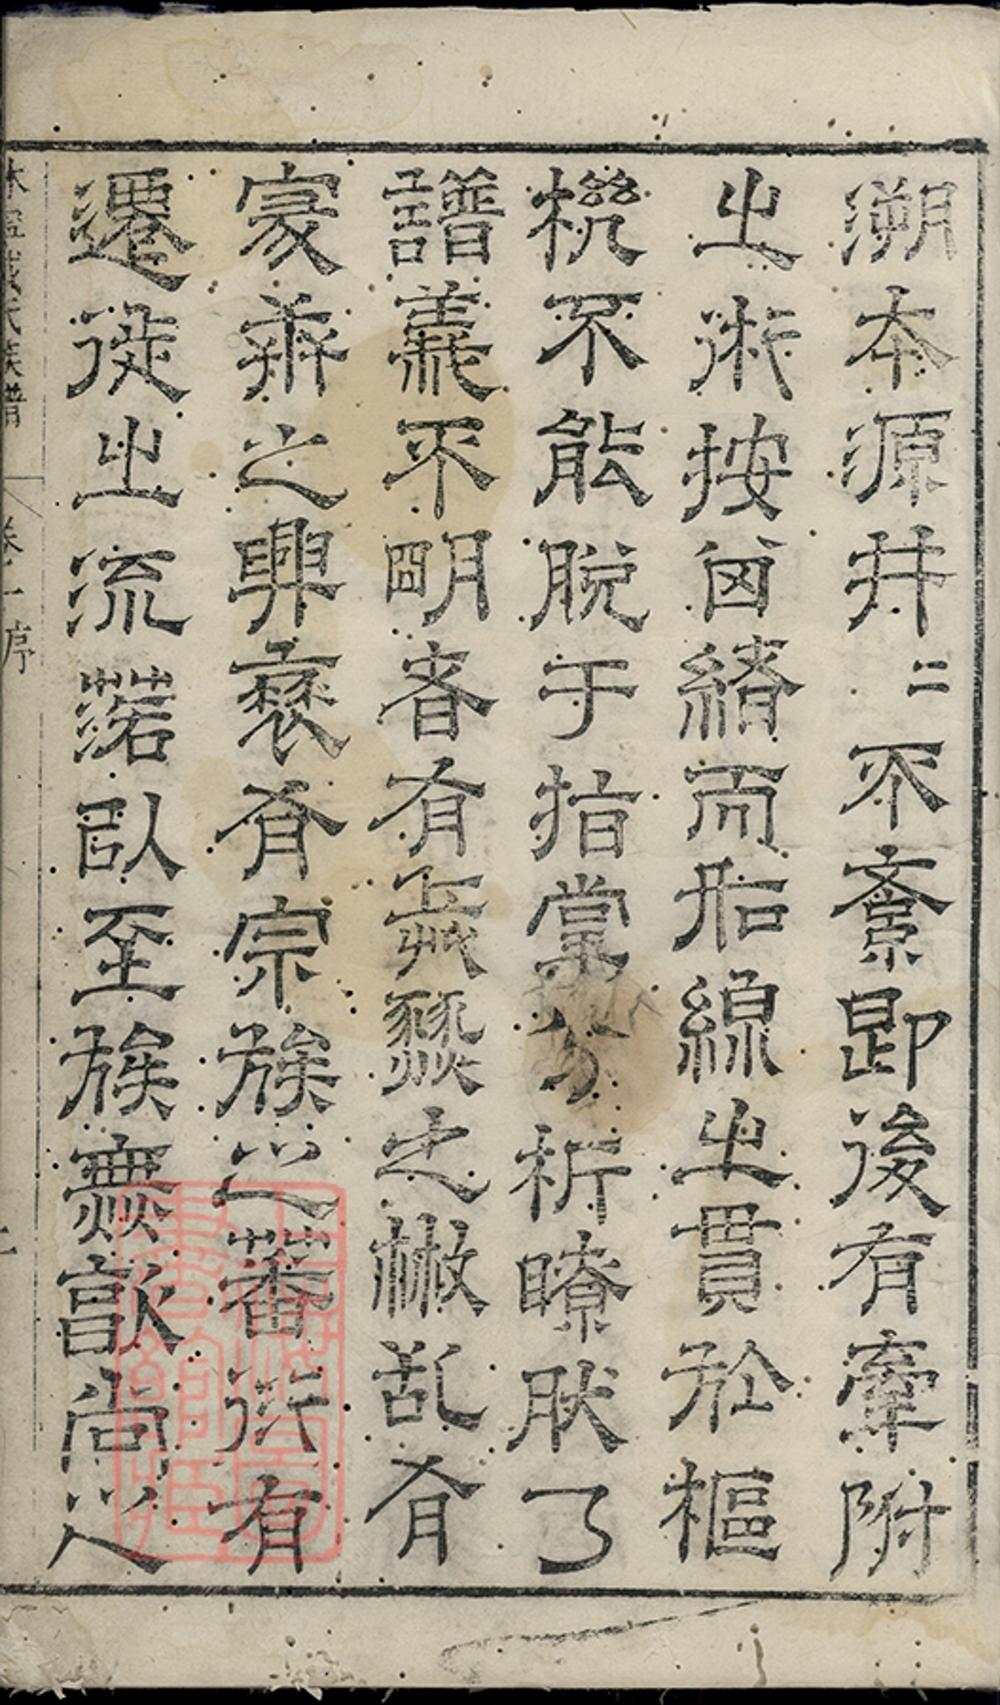 溯本源井二不紊即後有牽附
之術按図緒而形線之貫於樞
機不能脫于指掌分析瞭然了
譜義不明者有燕繁之楙乱有
家乘之興衰有宗族之蕃衍有
遷徙之流落臥至族無歆尚之
卷一序